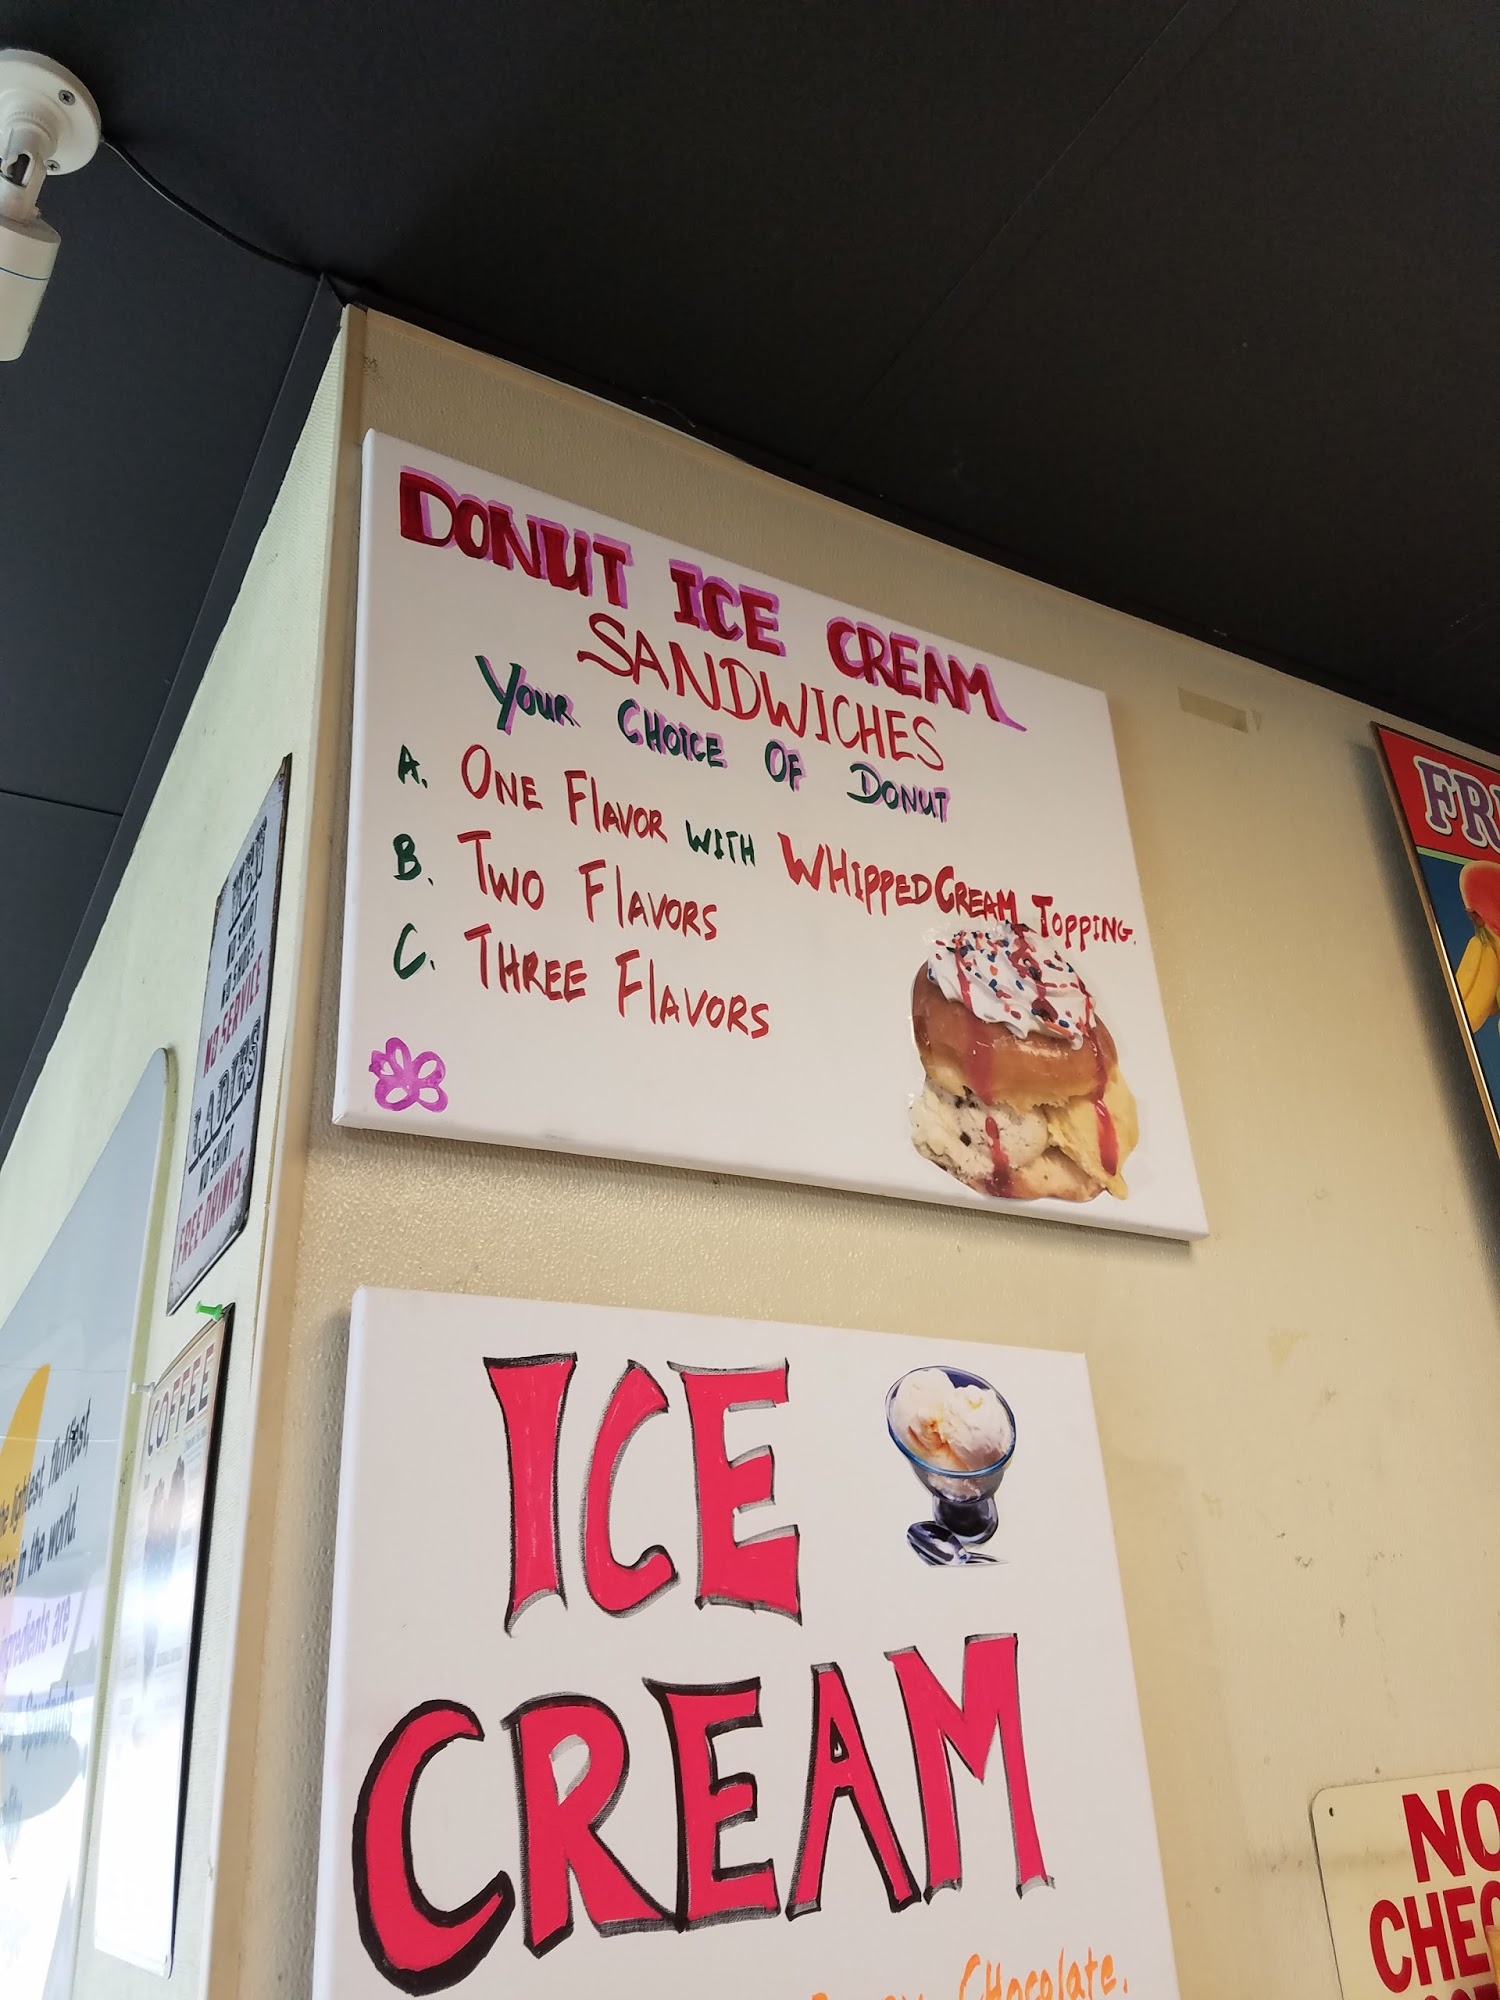 DONUT ICE CREAM
SANDWICHES
YOUR CHOICE OF DONUT
A. ONE FlAVOR WITH WHIPPED CREAM TOPPING.
B. TWO FlAVORS
C. THREE FlAVORS
ICE
CREAM
CHocolate.
NO SHIRT
NO SERVICE
LADIES
NO SHIRT
FREE DRINKS
COFFEE
lightest, fluffiest,
in the world.
ingredients are
NO